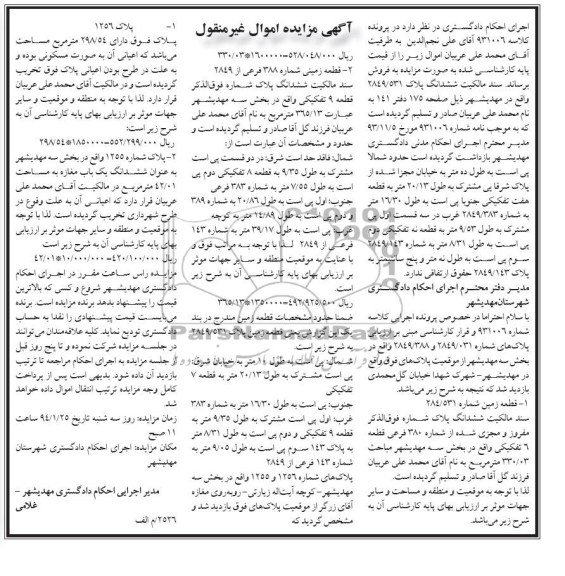 آگهی مزایده اموال غیرمنقول
اجرای احکام دادگستری در نظر دارد در پرونده
کلاسه ۹۳۱۰۰۶ آقای علی نجم‌الدین به طرفیت
آقای محمد علی عربیان اموال زیر را از قیمت
پایه کارشناسی شده به صورت مزایده به فروش
برساند. سند مالکیت ششدانگ پلاک ۲۸۴۹/۵۳۱
واقع در مهدیشهر ذیل صفحه ۱۷۵ دفتر ۱۴۱ به
نام محمد علی عربیان صادر و تسلیم گردیده است
که به موجب نامه شماره ۹۳۱۰۰۶ مورخ ۹۳/۱۱/۵
مدیر محترم اجرای احکام مدنی دادگستری
مهدیشهر بازداشت گردیده است حدود شمالا
پی است به طول ده متر به خیابان مجزا شده از
پلاک شرقا پی مشترک به طول ۲۰/۱۳ متر به قطعه
هفت تفکیکی جنوبا پی است به طول ۱۶/۳۰ متر
به شماره ۲۸۴۹/۳۸۳ غرب در سه قسمت اول پی
مشترک به طول ۹/۵۳ متر به قطعه نه تفکیکی دوم
پی است به طول ۸/۳۱ متر به شماره ۲۸۴۹/۱۴۳
سوم پی است به طول نه متر و پنج سانتیمتر به
پلاک ۲۸۴۹/۱۴۳ حقوق ارتفاقی ندارد
مدیر دفتر محترم اجرای احکام دادگستری
شهرستان مهدیشهر
با سلام احتراما در خصوص پرونده اجرایی کلاسه
۹۳۱۰۰۶ و قرار کارشناسی مبنی بر ارزیابی
پلاک‌های شماره ۲۸۴۹/۰۳۱ و ۲۸۴۹/۳۸۸ واقع در
بخش سه مهدیشهر از موقعیت پلاک‌های فوق واقع
در مهدیشهر- شهرک شهدا خیابان گل‌محمدی
بازدید شد که نتیجه به شرح زیر می‌باشد.
۱- قطعه زمین شماره ۲۸۴/۵۳۱
سند مالکیت ششدانگ پلاک شماره فوق‌الذکر
مفروز و مجزی شده از شماره ۳۸۰ فرعی قطعه
۶ تفکیکی واقع در بخش سه مهدیشهر مباحث
۳۳۰/۰۳ مترمربع به نام آقای محمد علی عربیان
فرزند گل آقا صادر و تسلیم گردیده است.
لذا با توجه به موقعیت و منطقه و مساحت و سایر
جهات موثر بر ارزیابی بهای پایه کارشناسی آن به
شرح زیر می‌باشد.
ریال ۵۲۸/۰۴۸/۰۰۰=۱۶۰۰۰۰۰*۳۳۰/۰۳
۲- قطعه زمینی شماره ۳۸۸ فرعی از ۲۸۴۹
سند مالکیت ششدانگ پلاک شماره فوق‌الذکر
قطعه ۹ تفکیکی واقع در بخش سه مهدیشهر
عبارت ۳۶۵/۱۳ مترمربع به نام آقای محمد علی
عربیان فرزند گل آقا صادر و تسلیم گردیده است و
حدود و مشخصات آن عبارت است از:
شمال: فاقد حد است شرق: در دو قسمت پی است
مشترک به طول ۹/۳۵ به قطعه ۸ تفکیکی دوم پی
است به طول ۷/۵۵ متر به شماره ۳۸۳ فرعی
جنوب: اول پی است به طول ۲۰/۸۶ به شماره ۳۸۹
و دوم پی است به طول ۱۴/۸۹ متر به کوچه
غرب: پی است به طول ۳۹/۱۷ متر به شماره ۱۴۳
فرعی از ۲۸۴۹ لذا با توجه به مراتب فوق و
با عنایت به موقعیت منطقه و سایر جهات موثر
بر ارزیابی بهای پایه کارشناسی آن به شرح زیر
است.
ریال ۴۹۲/۹۲۵/۵۰۰=۱۳۵۰۰۰۰*۳۶۵/۱۳
ضمنا حدود مشخصات قطعه زمین مندرج در بند
یک این گزارش یعنی قطعه زمین پلاک ۲۸۴۹/۵۳۱
به شرح زیر است.
شمال: پی است به طول ۱۰ متر به خیابان شرق:
پی است مشترک به طول ۲۰/۱۳ متر به قطعه ۷
تفکیکی
جنوب: پی است به طول ۱۶/۳۰ متر به شماره ۳۸۳
غرب: اول پی است مشترک به طول ۹/۳۵ متر به
قطعه ۹ تفکیکی و دوم پی است به طول ۸/۳۱ متر
به پلاک ۱۴۳ سوم پی است به طول ۹/۰۵ متر به
شماره ۱۴۳ فرعی از ۲۸۴۹
پلاک‌های شماره ۱۲۵۶ و ۱۲۵۵ واقع در بخش سه
مهدیشهر- کوچه آیت‌اله زیارتی- روبه‌روی مغازه
آقای زرگر از موقعیت پلاک‌های فوق بازدید شد و
مشخص گردید که
۱- پلاک ۱۲۵۶
پلاک فوق دارای ۲۹۸/۵۴ مترمربع مساحت
می‌باشد که اعیانی آن به صورت مسکونی بوده و
به علت در طرح بودن اعیانی پلاک فوق تخریب
گردیده است و در مالکیت آقای محمد علی عربیان
قرار دارد. لذا با توجه به منطقه و موقعیت و سایر
جهات موثر بر ارزیابی بهای پایه کارشناسی آن به
شرح زیر است:
ریال ۵۵۲/۲۹۹/۰۰۰=۱۸۵۰۰۰۰*۲۹۸/۵۴
۲- پلاک شماره ۱۲۵۵ واقع در بخش سه مهدیشهر
به عنوان ششدانگ یک باب مغازه به مساحت
۴۲/۰۱ مترمربع در مالکیت آقای محمد علی
عربیان قرار دارد که اعیانی آن به علت وقوع در
طرح شهرداری تخریب گردیده است. لذا با توجه
به موقعیت و منطقه و سایر جهات موثر بر ارزیابی
بهای پایه کارشناسی آن به شرح زیر است
ریال ۴۲۰/۱۰۰/۰۰۰=۱۰/۰۰۰/۰۰۰*۴۲/۰۱
مزایده راس ساعت مقرر در اجرای احکام
دادگستری مهدیشهر شروع و کسی که بالاترین
قیمت را پیشنهاد بدهد برنده مزایده است. برنده
می‌بایست قیمت پیشنهادی را نقدا به حساب
دادگستری تودیع نماید. کلیه علاقه‌مندان می‌توانند
در جلسه مزایده شرکت نموده و تا پنج روز قبل
از جلسه مزایده به اجرای احکام مراجعه تا ترتیب
بازدید آن داده شود. بدیهی است پس از پرداخت
کامل وجه مزایده ترتیب انتقال اموال داده خواهد
شد.
زمان مزایده: روز سه شنبه تاریخ ۹۴/۱/۲۵ ساعت
۱۱ صبح
مکان مزایده: اجرای احکام دادگستری شهرستان
مهدیشهر
مدیر اجرایی احکام دادگستری مهدیشهر –
غلامی
۲۵۲۶/م الف